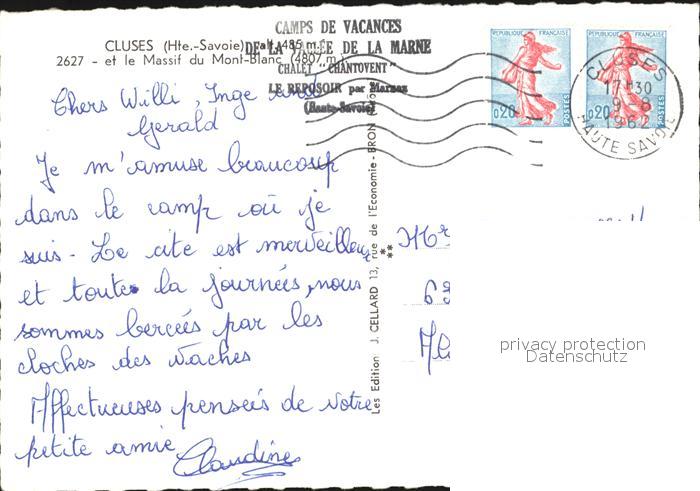 CAMPS DE VACANCES
DE LA VALLÉE DE LA MARNE
CHALET "CHANTOVENT"
LE REPOSOIR par Marnaz
(Haute-Savoie)
CLUSES (Hte.-Savoie) alt. 485 m.
2627 - et le Massif du Mont-Blanc (4807 m
REPUBLIQUE FRANÇAISE
0,20
POSTES
REPUBLIQUE FRANÇAISE
0,20
POSTES
CLUSES
17H30
9-8
1962
HAUTE SAVOIE
Chers Willi, Inge und
Gerald
Je m'amuse beaucoup
dans le camp où je
suis. Le cite est merveilleux
et toute la journées, nous
sommes bercées par les
cloches des vaches
Affectueuses pensées de votre
petite amie
Claudine
Les Edition J. CELLARD 13, rue de l'Economie - BRON
Mr
privacy protection
Datenschutz